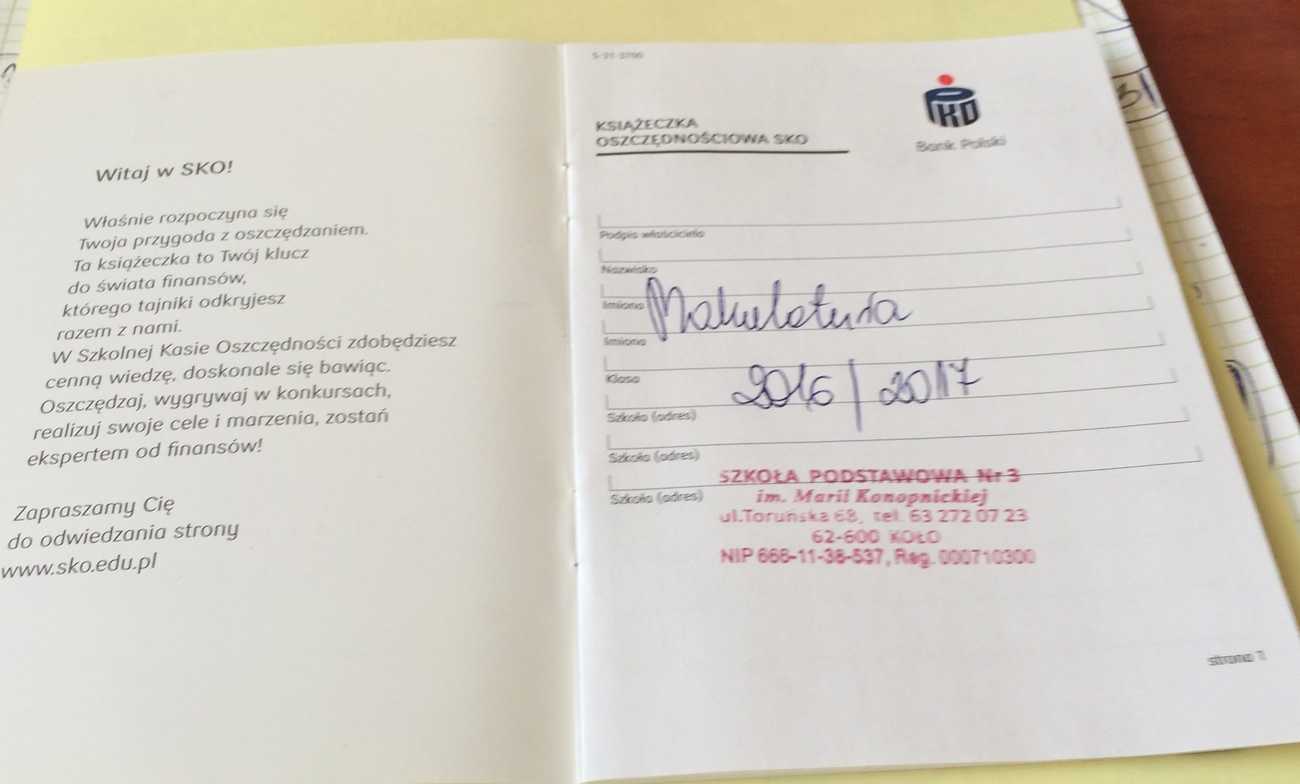 Witaj w SKO!
Właśnie rozpoczyna się
Twoja przygoda z oszczędzaniem.
Ta książeczka to Twój klucz
do świata finansów,
którego tajniki odkryjesz
razem z nami.
W Szkolnej Kasie Oszczędności zdobędziesz
cenną wiedzę, doskonale się bawiąc.
Oszczędzaj, wygrywaj w konkursach,
realizuj swoje cele i marzenia, zostań
ekspertem od finansów!
Zapraszamy Cię
do odwiedzania strony
www.sko.edu.pl
KSIĄŻECZKA
OSZCZĘDNOŚCIOWA SKO
PKO
Bank Polski
Podpis właściciela
Nazwisko
Imiona
Makulatura
Imiona
Klasa
2016/2017
Szkoła (adres)
Szkoła (adres)
Szkoła (adres)
SZKOŁA PODSTAWOWA Nr 3
im. Marii Konopnickiej
ul.Toruńska 68, tel. 63 272 07 23
62-600 KOŁO
NIP 666-11-38-537, Reg. 000710300
strona 1